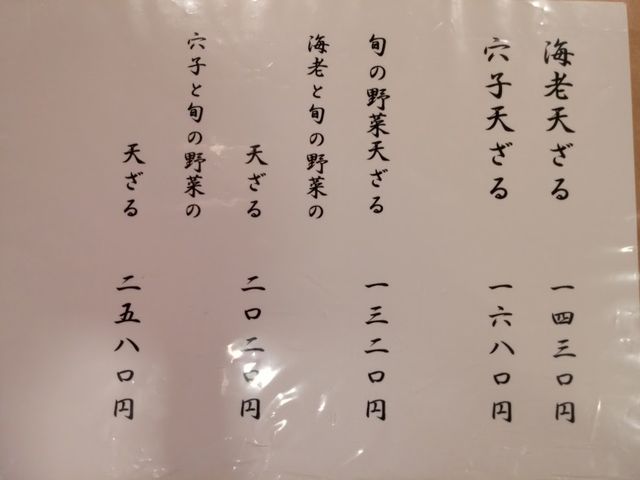 海老天ざる 一四三〇円
穴子天ざる 一六八〇円
旬の野菜天ざる 一三二〇円
海老と旬の野菜の
天ざる 二〇二〇円
穴子と旬の野菜の
天ざる 二五八〇円